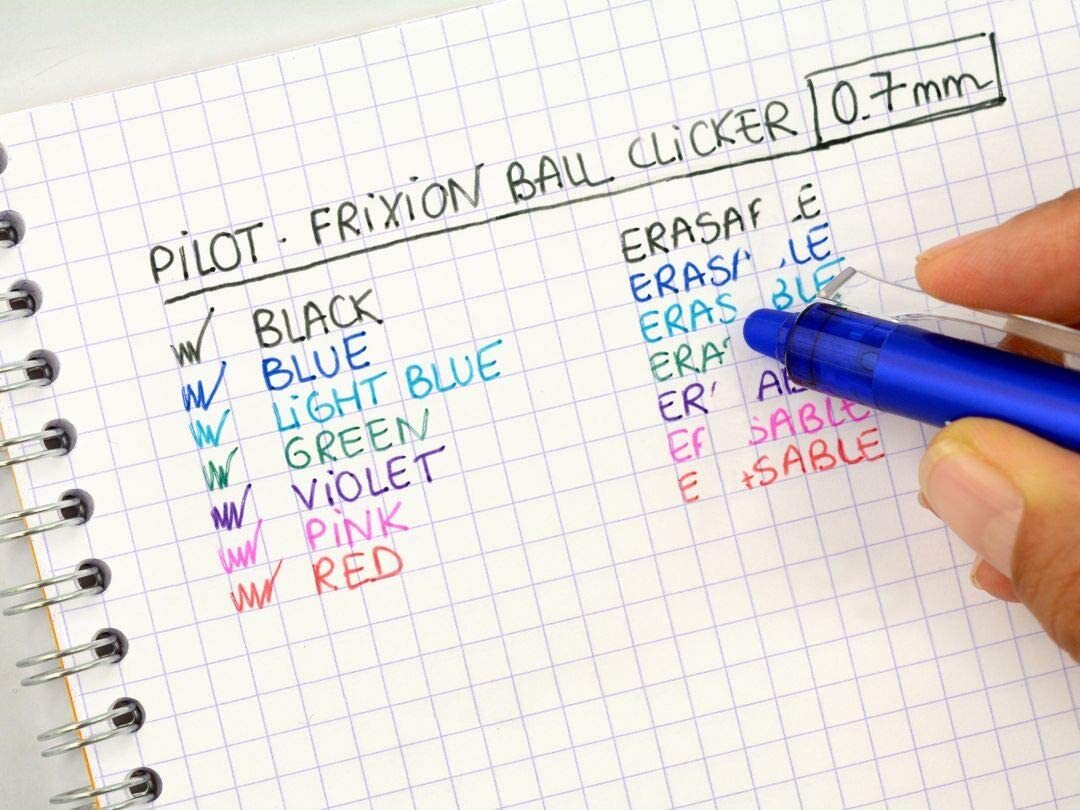 PiLOT. FRiXiON BALL CLiCKER 0.7mm
BLACK
BLUE
LiGHT BLUE
GREEN
ViOLET
PiNK
RED
ERASA LE
ERASA LE
ERAS BLE
ERA
ER AB
E SABLE
E SABLE